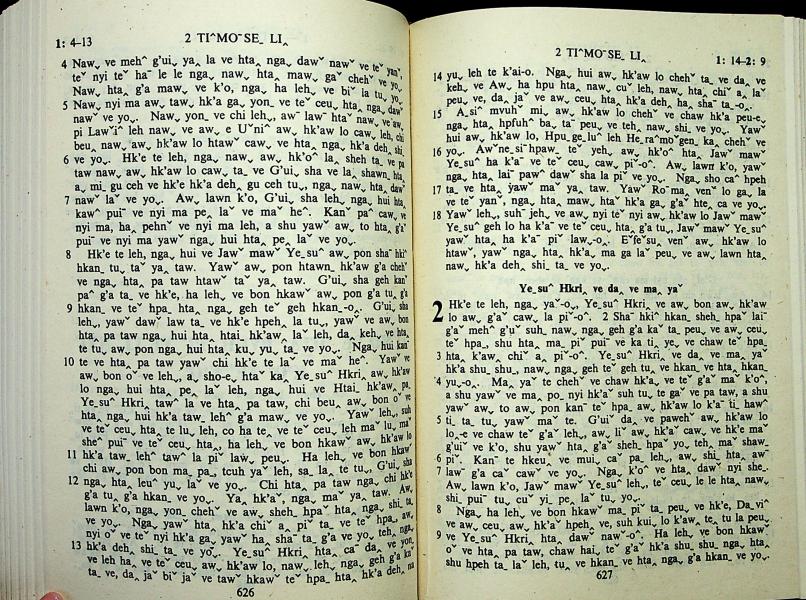 1: 4-13
2 TIˆMOˉSE_ LI‸
4 Naw⌄ ve mehˆ g'ui⌄ ya‸ la ve hta‸ nga⌄ dawˇ nawˇ ve teˇ yanˇ,
teˇ nyi teˇ haˉ le le nga⌄ naw⌄ hta‸ maw⌄ gaˇ chehˇ ve yo⌄.
Naw⌄ hta‸ g'a maw⌄ ve k'o⌄ nga⌄ ha leh⌄ ve biˇ la tu⌄ yo⌄.
5 Naw⌄ nyi ma aw⌄ taw⌄ hk'a ga⌄ yon_ ve teˇ ceu⌄ hta‸ nga⌄ dawˇ
nawˇ ve yo⌄. Naw⌄ yon_ ve chi leh⌄, awˇ lawˇ htaˇ naw⌄ ve aw⌄
pi Lawˇiˆ leh naw⌄ ve aw⌄ e Uˇniˆ aw⌄ hk'aw lo caw⌄ leh⌄ chi
beu⌄ naw⌄ aw⌄ hk'aw lo htawˇ caw⌄ ve hta‸ nga⌄ hk'a deh⌄ shi_
6 ve yo⌄. Hk'e te leh, nga⌄ naw⌄ aw⌄ hk'oˆ la‸ sheh_ ta⌄ ve pa
taw naw⌄ aw⌄ hk'aw lo caw⌄ ta⌄ ve G'ui⌄ sha ve la‸ shawn_ hta‸
a‸ mi_ gu ceh ve hk'e hk'a deh_ gu ceh tu⌄, nga⌄ naw⌄ hta‸ dawˇ
7 nawˇ laˇ ve yo⌄. Aw⌄ lawn k'o⌄ G'ui⌄ sha leh⌄ nga⌄ hui hta‸
kawˆ puiˉ ve nyi ma pe‸ laˇ ve maˇ heˆ. Kanˇ paˆ caw⌄ ve
nyi ma, ha‸ pehnˇ ve nyi ma leh, a shu yaw⌄ aw⌄ to hta‸ g'aˇ
puiˉ ve nyi ma yawˇ nga⌄ hui hta‸ pe‸ laˇ ve yo⌄.
8 Hk'e te leh, nga⌄ hui ve Jawˇ mawˇ Ye_suˆ aw⌄ pon shaˉ hkiˆ
hkan_ tu⌄ taˇ ya‸ taw. Yawˇ aw⌄ pon htawn_ hk'aw g'a chehˇ
ve nga⌄ hta‸ pa taw htawˇ taˇ ya‸ taw. G'ui⌄ sha geh kanˇ
paˆ g'a ta_ ve hk'e, ha leh⌄ ve bon hkawˇ aw⌄ pon g'a tu⌄ g'a
9 hkan_ve teˇ hpa_ hta‸ nga⌄ geh teˇ geh hkan_-o‸. G'ui⌄ sha
leh⌄, yawˇ dawˇ law ta_ ve hk'e hpeh‸ la tu⌄, yawˇ ve aw⌄ bon
hta‸ pa taw nga⌄ hui hta‸ htai_ hk'aw‸ laˇ leh⌄ da‸ keh⌄ ve hta‸
te tu⌄ aw⌄ pon nga⌄ hui hta‸ ku⌄ yu‸ ta_ ve yo⌄. Nga⌄ hui kanˇ
10 te ve hta‸ pa taw yawˇ chi hk'e te laˇ ve maˇ heˆ. Yawˇ ve
aw⌄ bon oˇ ve leh⌄, a‸ sho-e‸ htaˇ ka‸ Ye_suˆ Hkri‸ aw⌄ hk'aw
lo nga⌄ hui hta‸ pe‸ laˇ leh⌄, nga⌄ hui ve Htai_ hk'aw‸ pa_
Ye_suˆ Hkri‸ tawˆ la ve hta‸ pa taw, chi beu⌄ aw⌄ bon oˇ ve
hta‸ nga⌄ hui hk'a taw⌄ lehˆ g'a maw⌄ ve yo⌄. Yawˇ leh⌄ suh
ve teˇ ceu⌄ hta‸ te lu⌄ leh⌄ co ha te⌄ ve teˇ ceu⌄ leh maˇ lu⌄ maˇ
sheˆ puiˉ ve teˇ ceu⌄ hta‸ ha leh⌄ ve bon hkawˇ aw⌄ hk'aw lo
11 hk'a taw⌄ lehˆ tawˆ la piˇ law⌄ peu⌄. Ha leh⌄ ve bon hkawˇ
chi aw⌄ pon bon ma pa_ tcuh yaˇ leh, sa_ la te tu⌄, G'ui⌄ sha
12 nga⌄ hta‸ leuˆ yu⌄ laˇ ve yo⌄. Chi hta‸ pa taw nga⌄ chi hk'e
g'a tu⌄ g'a hkan_ ve yo⌄. Ya‸ hk'aˇ, nga⌄ maˇ ya‸ taw. Aw⌄
lawn k'o⌄, nga⌄ yon_ chehˇ ve aw⌄ sheh_ hpaˇ hta‸ nga⌄ shi_ ta_
ve yo⌄. Nga⌄ yawˇ hta‸ hk'a chiˇ a‸ piˇ ta_ ve teˇ hpa_ aw⌄
nyi oˇ ve teˇ nyi hk'a ga⌄ yawˇ ha‸ shaˉ ta_ g'a ve yo⌄ teh⌄ nga⌄
13 hk'a deh⌄ shi_ ta_ ve yo⌄. Ye_suˆ Hkri‸ hta‸ caˇ da⌄ ve yon_
ve leh ha⌄ ve teˇ ceu⌄ aw⌄ hk'aw lo, naw⌄ leh⌄ nga⌄ geh g'a kaˇ
ta_ ve, da‸ jaˇ biˇ jaˇ ve taw⌄ hkawˇ teˇ hpa_ hta‸ hk'a deh⌄ na
626
2 TIˆMOˉSE_ LI‸
1: 14-2: 9
14 yu⌄ leh te k'ai-o. Nga⌄ hui aw⌄ hk'aw lo chehˇ ta_ ve da‸ ve
keh⌄ ve Aw⌄ ha hpu hta‸ naw⌄ cuˇ leh⌄ naw⌄ hta‸ chiˇ a‸ laˇ
peu⌄ ve, da‸ jaˇ ve aw⌄ ceu⌄ hta‸ hk'a deh⌄ ha‸ shaˉ ta_-o‸.
15 A_siˆ mvuhˇ mi_ aw⌄ hk'aw lo chehˇ ve chaw hk'a peu-e⌄
nga⌄ hta‸ hpfuhˇ ba⌄ ta⌄ peu⌄ ve teh⌄ naw⌄ shi_ ve yo⌄. Yawˇ
hui aw⌄ hk'aw lo, Hpu_ge_luˆ leh He_raˆmoˇgen_ ka‸ chehˇ ve
16 yo⌄. Awˇne_siˉhpaw_ teˇ yeh⌄ aw⌄ hk'oˆ hta‸ Jawˇ mawˇ
Ye_suˆ ha kˇaˉ ve teˇ ceu⌄ caw⌄ piˇ-oˆ. Aw⌄ lawn k'o⌄ yawˇ
nga⌄ hta‸ laiˇ pawˆ dawˇ sha la piˇ ve yo⌄. Nga⌄ sho caˇ hpeh
17 ta_ ve hta‸ yawˇ maˇ ya‸ taw. Yawˇ Roˉma_ ven⌄ lo ga‸ la
ve teˇ yanˇ, nga⌄ hta‸ maw⌄ htaˇ hk'a ga⌄ g'aˇ hte‸ ca ve yo⌄.
18 Yawˇ leh⌄, suhˉ jeh⌄ ve aw⌄ nyi teˇ nyi aw⌄ hk'aw lo Jawˇ mawˇ
Ye_suˆ geh lo ha k'aˉ ve teˇ ceu⌄ hta‸ g'a tu⌄, Jawˇ mawˇ Ye_suˆ
yawˇ hta‸ ha k'aˉ piˇ law⌄-o‸. Eˇfeˇsu_ ven⌄ aw⌄ hk'aw lo
htawˇ, yawˇ nga⌄ hta‸ hk'a ma ga⌄ laˇ peu⌄ ve aw⌄ lawn hta‸
naw⌄ hk'a deh⌄ shi_ ta_ ve yo⌄.
Ye_suˆ Hkri‸ ve da‸ ve ma‸ yaˇ
2 Hk'e te leh, nga⌄ yaˇ-o⌄, Ye_suˆ Hkri‸ ve aw⌄ bon aw⌄ hk'aw
lo aw⌄ g'aˇ caw⌄ la piˇ-oˆ. 2 Shaˉ hkiˆ hkan_ sheh_ hpaˇ laiˉ
g'aˇ mehˆ g'u⌄ suh_ naw⌄ nga⌄ geh g'a kaˇ ta_ peu⌄ ve aw⌄ ceu⌄
teˇ hpa_, shu hta‸ ma_ piˇ puiˉ ve ka ti_ ye_ ve chaw teˇ hpa_
3 hta‸ k'aw‸ chiˇ a‸ piˇ-oˆ. Ye_suˆ Hkri‸ ve da‸ ve ma‸ yaˇ
hk'a shu_ shu_ naw⌄ nga⌄ geh teˇ geh tu⌄ ve hkan_ ve hta‸ hkan_
4 yu_-o‸. Ma‸ yaˇ te chehˇ ve chaw hk'a‸ ve teˇ g'aˇ maˇ k'oˆ,
a shu yawˇ ve ma_ po_ nyi hk'aˇ suh tu⌄ te gaˇ ve pa taw, a shu
yawˇ aw⌄ to aw⌄ pon kanˉ teˇ hpa_ aw⌄ hk'aw lo k'aˉ ti_ hawˆ
5 ti_ ta_ tu⌄ yawˇ maˇ te. G'uiˇ da‸ ve pawehˇ aw⌄ hk'aw lo
lo‸-e ve chaw teˇ g'aˇ leh⌄, aw⌄ liˇ aw⌄ hk'aˇ caw⌄ ve hk'e maˇ
g'uiˇ ve k'o⌄, shu yawˇ hta‸ g'aˇ sheh_ hpaˇ yo⌄ teh⌄ maˇ shaw_
6 piˇ. Kanˉ te hkeu‸ ve mui⌄ caˇ pa_ leh⌄ aw⌄ shi_ hta‸ awˇ
7 lawˇ g'a caˇ caw⌄ ve yo⌄. Nga⌄ k'oˆ ve hta‸ dawˇ nyi she_.
Aw⌄ lawn k'o⌄, Jawˇ mawˇ Ye_suˆ leh⌄, teˇ ceu⌄ le le hta‸ naw⌄
shi_ puiˉ tu⌄ cuˇ yi_ pe‸ laˇ tu⌄ yo⌄.
8 Nga⌄ ha leh⌄ ve bon hkawˇ ma_ piˇ ta_ peu⌄ ve hk'e, Da_viˆ
ve aw⌄ ceu⌄ aw⌄ hk'aˇ hpeh‸ ve, suh kui_ lo k'aw‸ te_ tu la peu⌄
9 ve Ye_suˆ Hkri‸ hta‸ dawˇ nawˇ-oˆ. Ha leh⌄ ve bon hkawˇ
oˇ ve hta‸ pa taw, chaw hai_ teˇ g'aˇ hk'a shu_ shu_ nga⌄ hta‸
shu hpeh ta_ la ˇ leh, tu⌄ ve hkan_ ve hta‸ nga⌄ g'a hkan_ ve yo⌄.
627